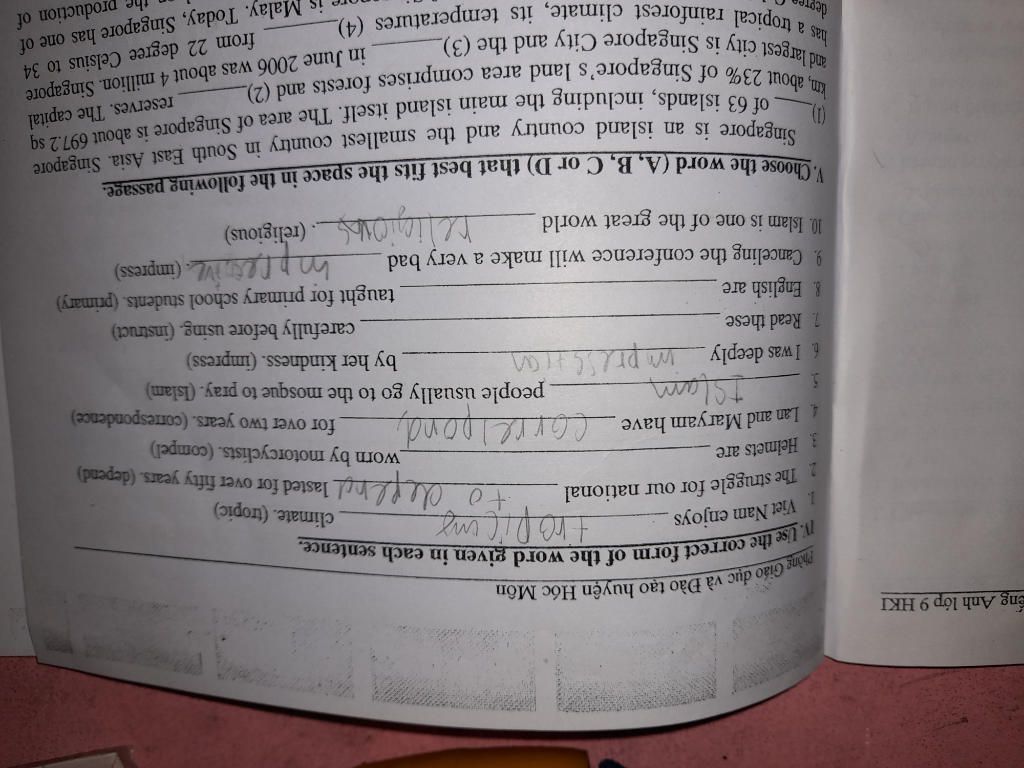 ếng Anh lớp 9 HKI
Phòng Giáo dục và Đào tạo huyện Hóc Môn
IV. Use the correct form of the word given in each sentence.
1. Viet Nam enjoys tropicing climate. (tropic)
2. The struggle for our national to depend lasted for over fifty years. (depend)
3. Helmets are ________ worn by motorcyclists. (compel)
4. Lan and Maryam have correlpond for over two years. (correspondence)
5. Islam people usually go to the mosque to pray. (Islam)
6. I was deeply impression by her kindness. (impress)
7. Read these ________ carefully before using. (instruct)
8. English are ________ taught for primary school students. (primary)
9. Canceling the conference will make a very bad impressive. (impress)
10. Islam is one of the great world religious. (religious)
V. Choose the word (A, B, C or D) that best fits the space in the following passage.
Singapore is an island country and the smallest country in South East Asia. Singapore
(1)____ of 63 islands, including the main island itself. The area of Singapore is about 697.2 sq
km, about 23% of Singapore's land area comprises forests and (2)________ reserves. The capital
and largest city is Singapore City and the (3)________ in June 2006 was about 4 million. Singapore
has a tropical rainforest climate, its temperatures (4)________ from 22 degree Celsius to 34
degree is Malay. Today, Singapore has one of
the production of